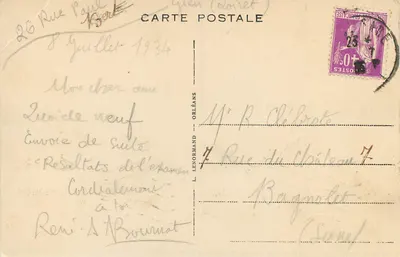 26 Rue Paul
Bert
Gien (Loiret)
CARTE POSTALE
8 Juillet 1934
Mon cher ami
Quoi de neuf
Envoie de suite
Résultats de l'examen
Cordialement
à toi
René
L. LENORMAND - ORLÉANS
Mr R.
7 Rue du Château 7
Bagnolet
(Seine)
40c
POSTES